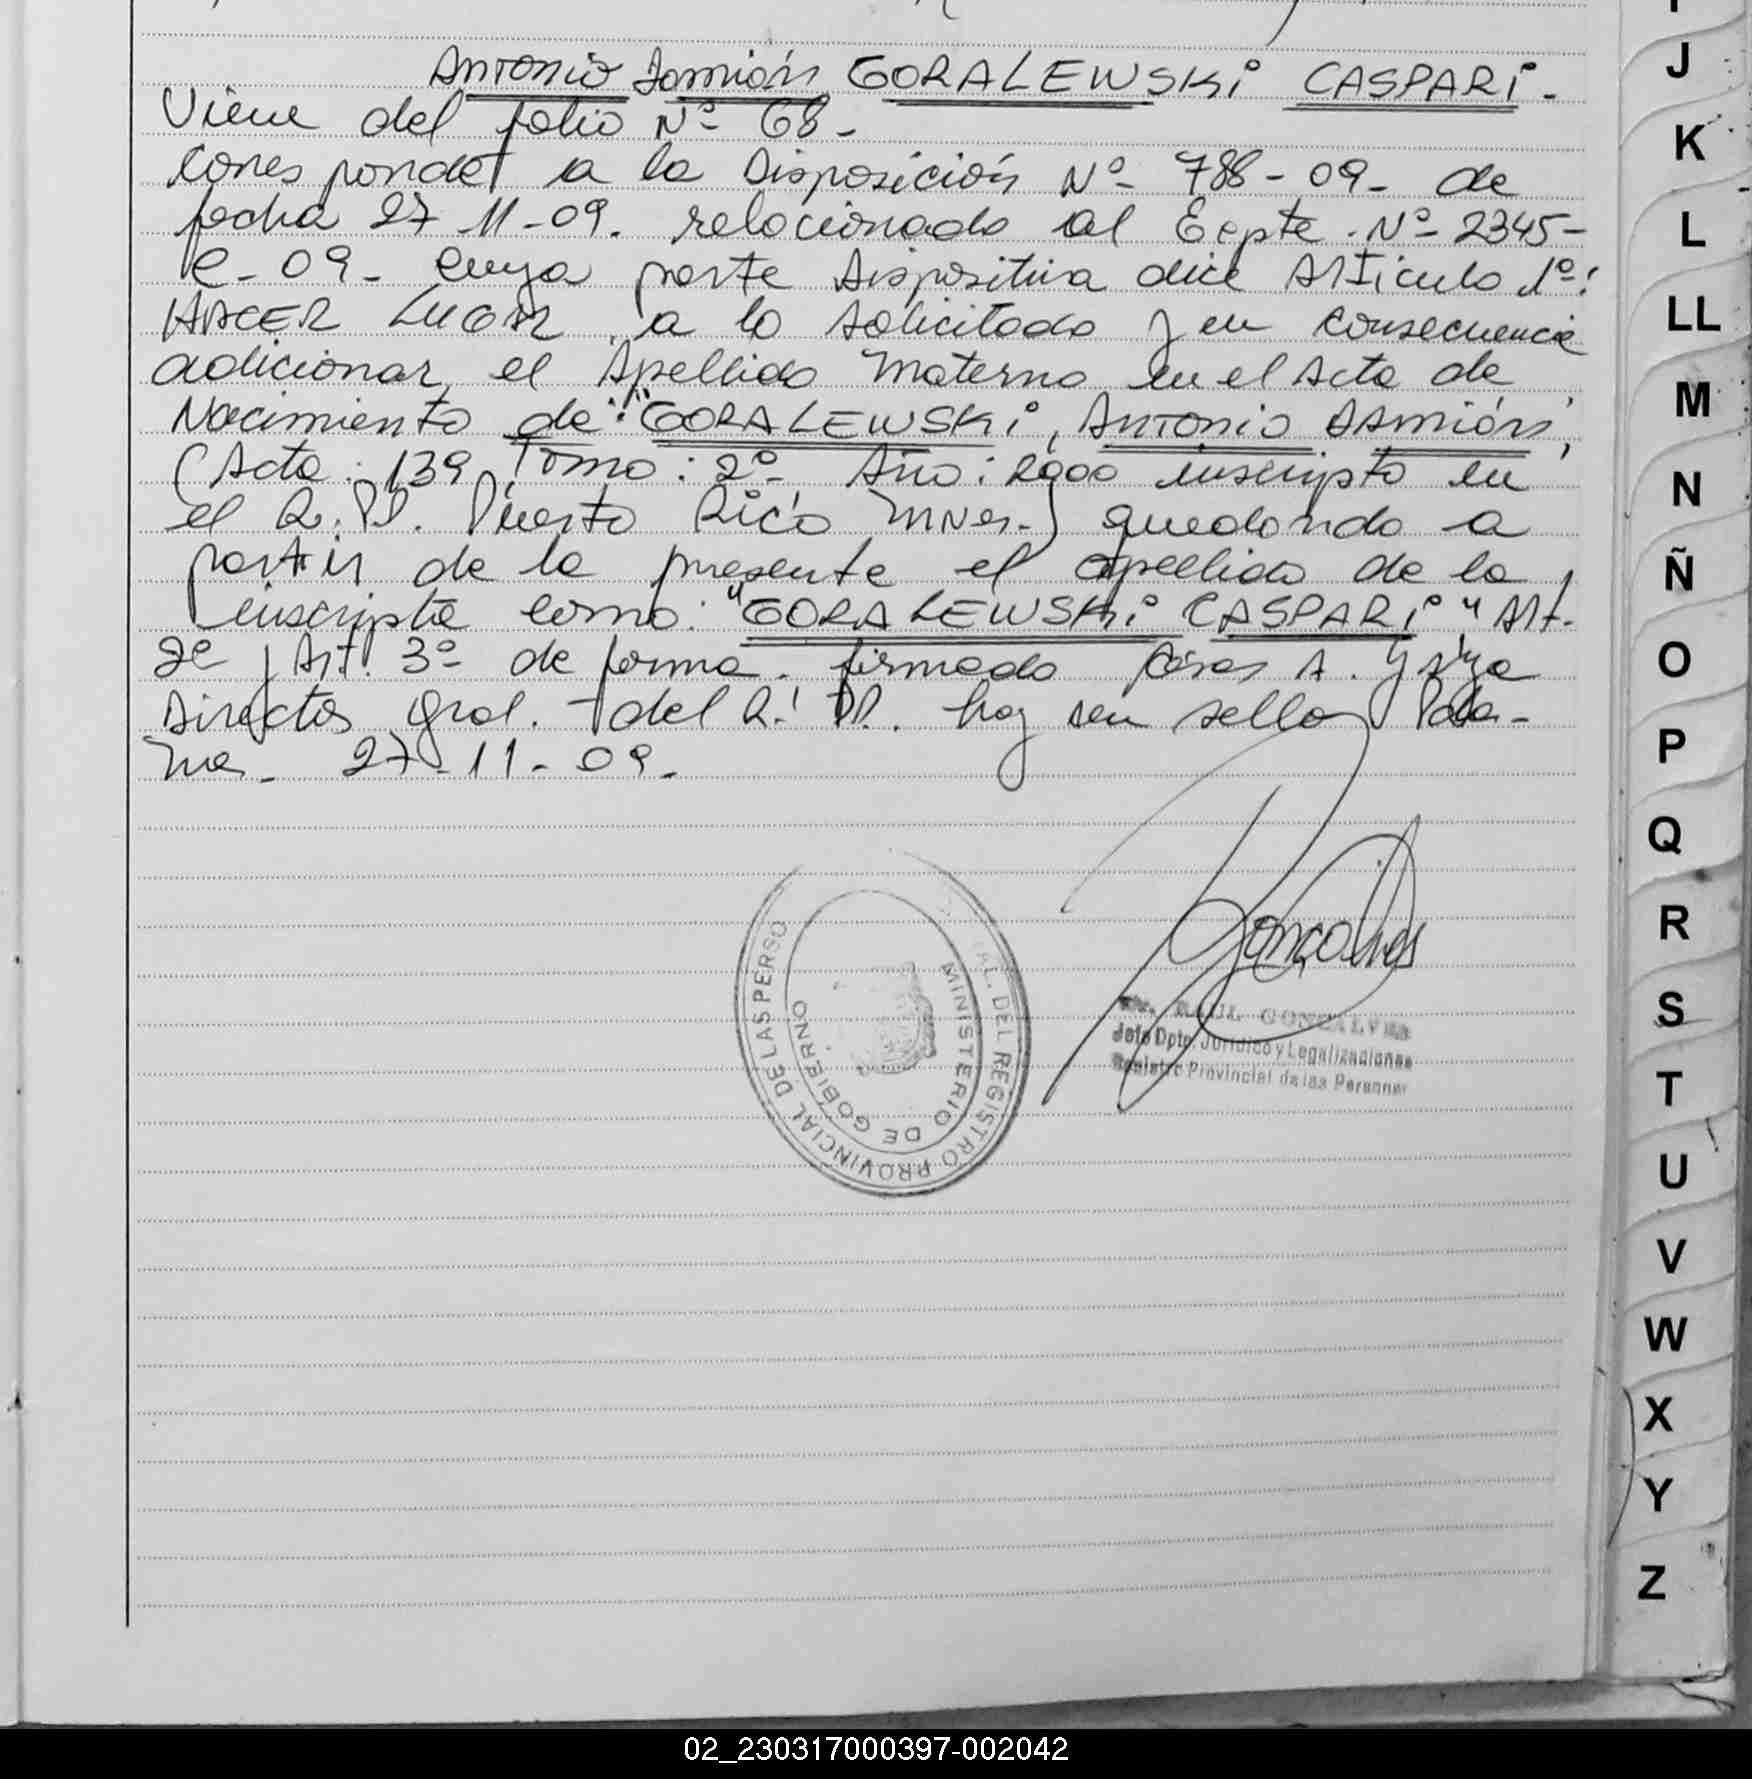 Antonio Damián GORALEWSKi CASPARi.-
Viene del folio Nº 68.-
Corresponde a la Disposición Nº 788-09- de
fecha 27-11-09. relacionado al Expte. Nº 2345-
C-09- cuya parte dispositiva dice Articulo 1º:
HACER LUGAR, a lo solicitado y en consecuencia
adicionar el Apellido Materno en el Acta de
Nacimiento de: "GORALEWSKi, Antonio DAmián",
(Acta: 139, Tomo: 2º- Año: 2000 inscripto en
el R.PP. Puerto Rico Mnes.-) quedando a
partir de la presente el apellido de la
inscripta como: "GORALEWSKi CASPARi" Art.
2º y Art. 3º de forma. firmado A.
Director Gral. del R. PP. hay un sello Posa-
das. 27-11-09.
Gonçalves
RAUL GONCALVES
Jefe Dpto. Jurídico y Legalizaciones
Registro Provincial de las Personas
AL. DEL REGISTRO PROVINCIAL DE LAS PERSO
MINISTERIO DE GOBIERNO
J
K
L
LL
M
N
Ñ
O
P
Q
R
S
T
U
V
W
X
Y
Z
02_230317000397-002042